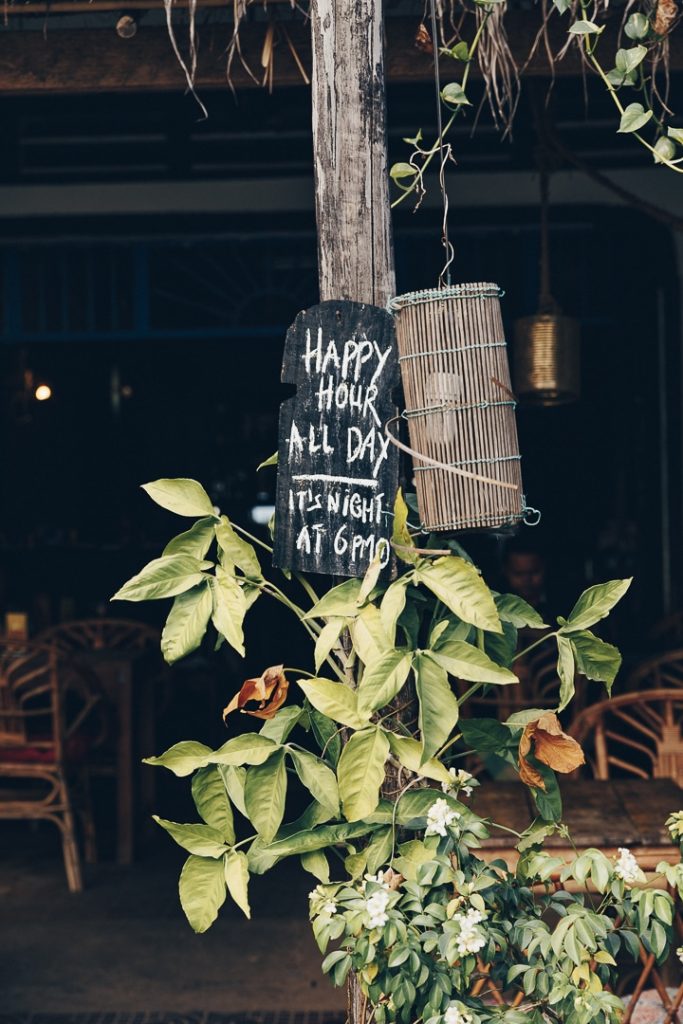 HAPPY
HOUR
ALL DAY
IT'S NIGHT
AT 6PM